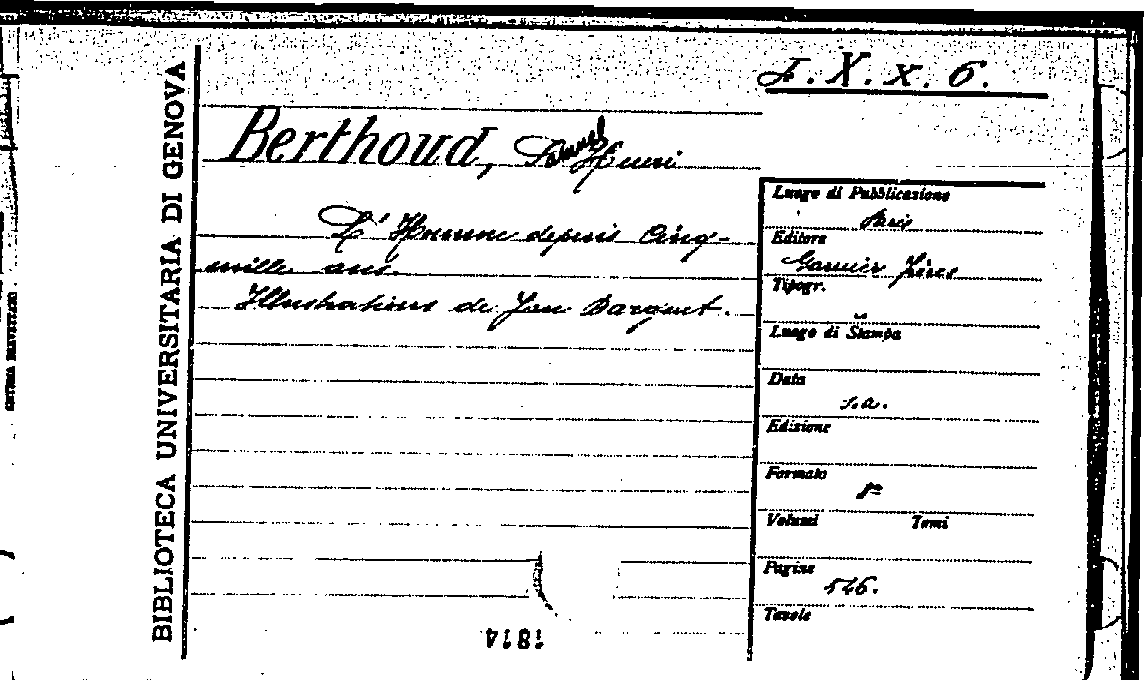 BIBLIOTECA UNIVERSITARIA DI GENOVA
Berthoud, Samuel Henri
L'Homme depuis cinq-
mille ans.
Illustrations de Yan Dargent.
X. x. 6.
Luogo di Pubblicazione
Paris
Editore
Garnier frères
Tipogr.
Luogo di Stampa
Data
s.a.
Edizione
Formato
8º
Volumi Tomi
Pagine
546.
Tavole
1814